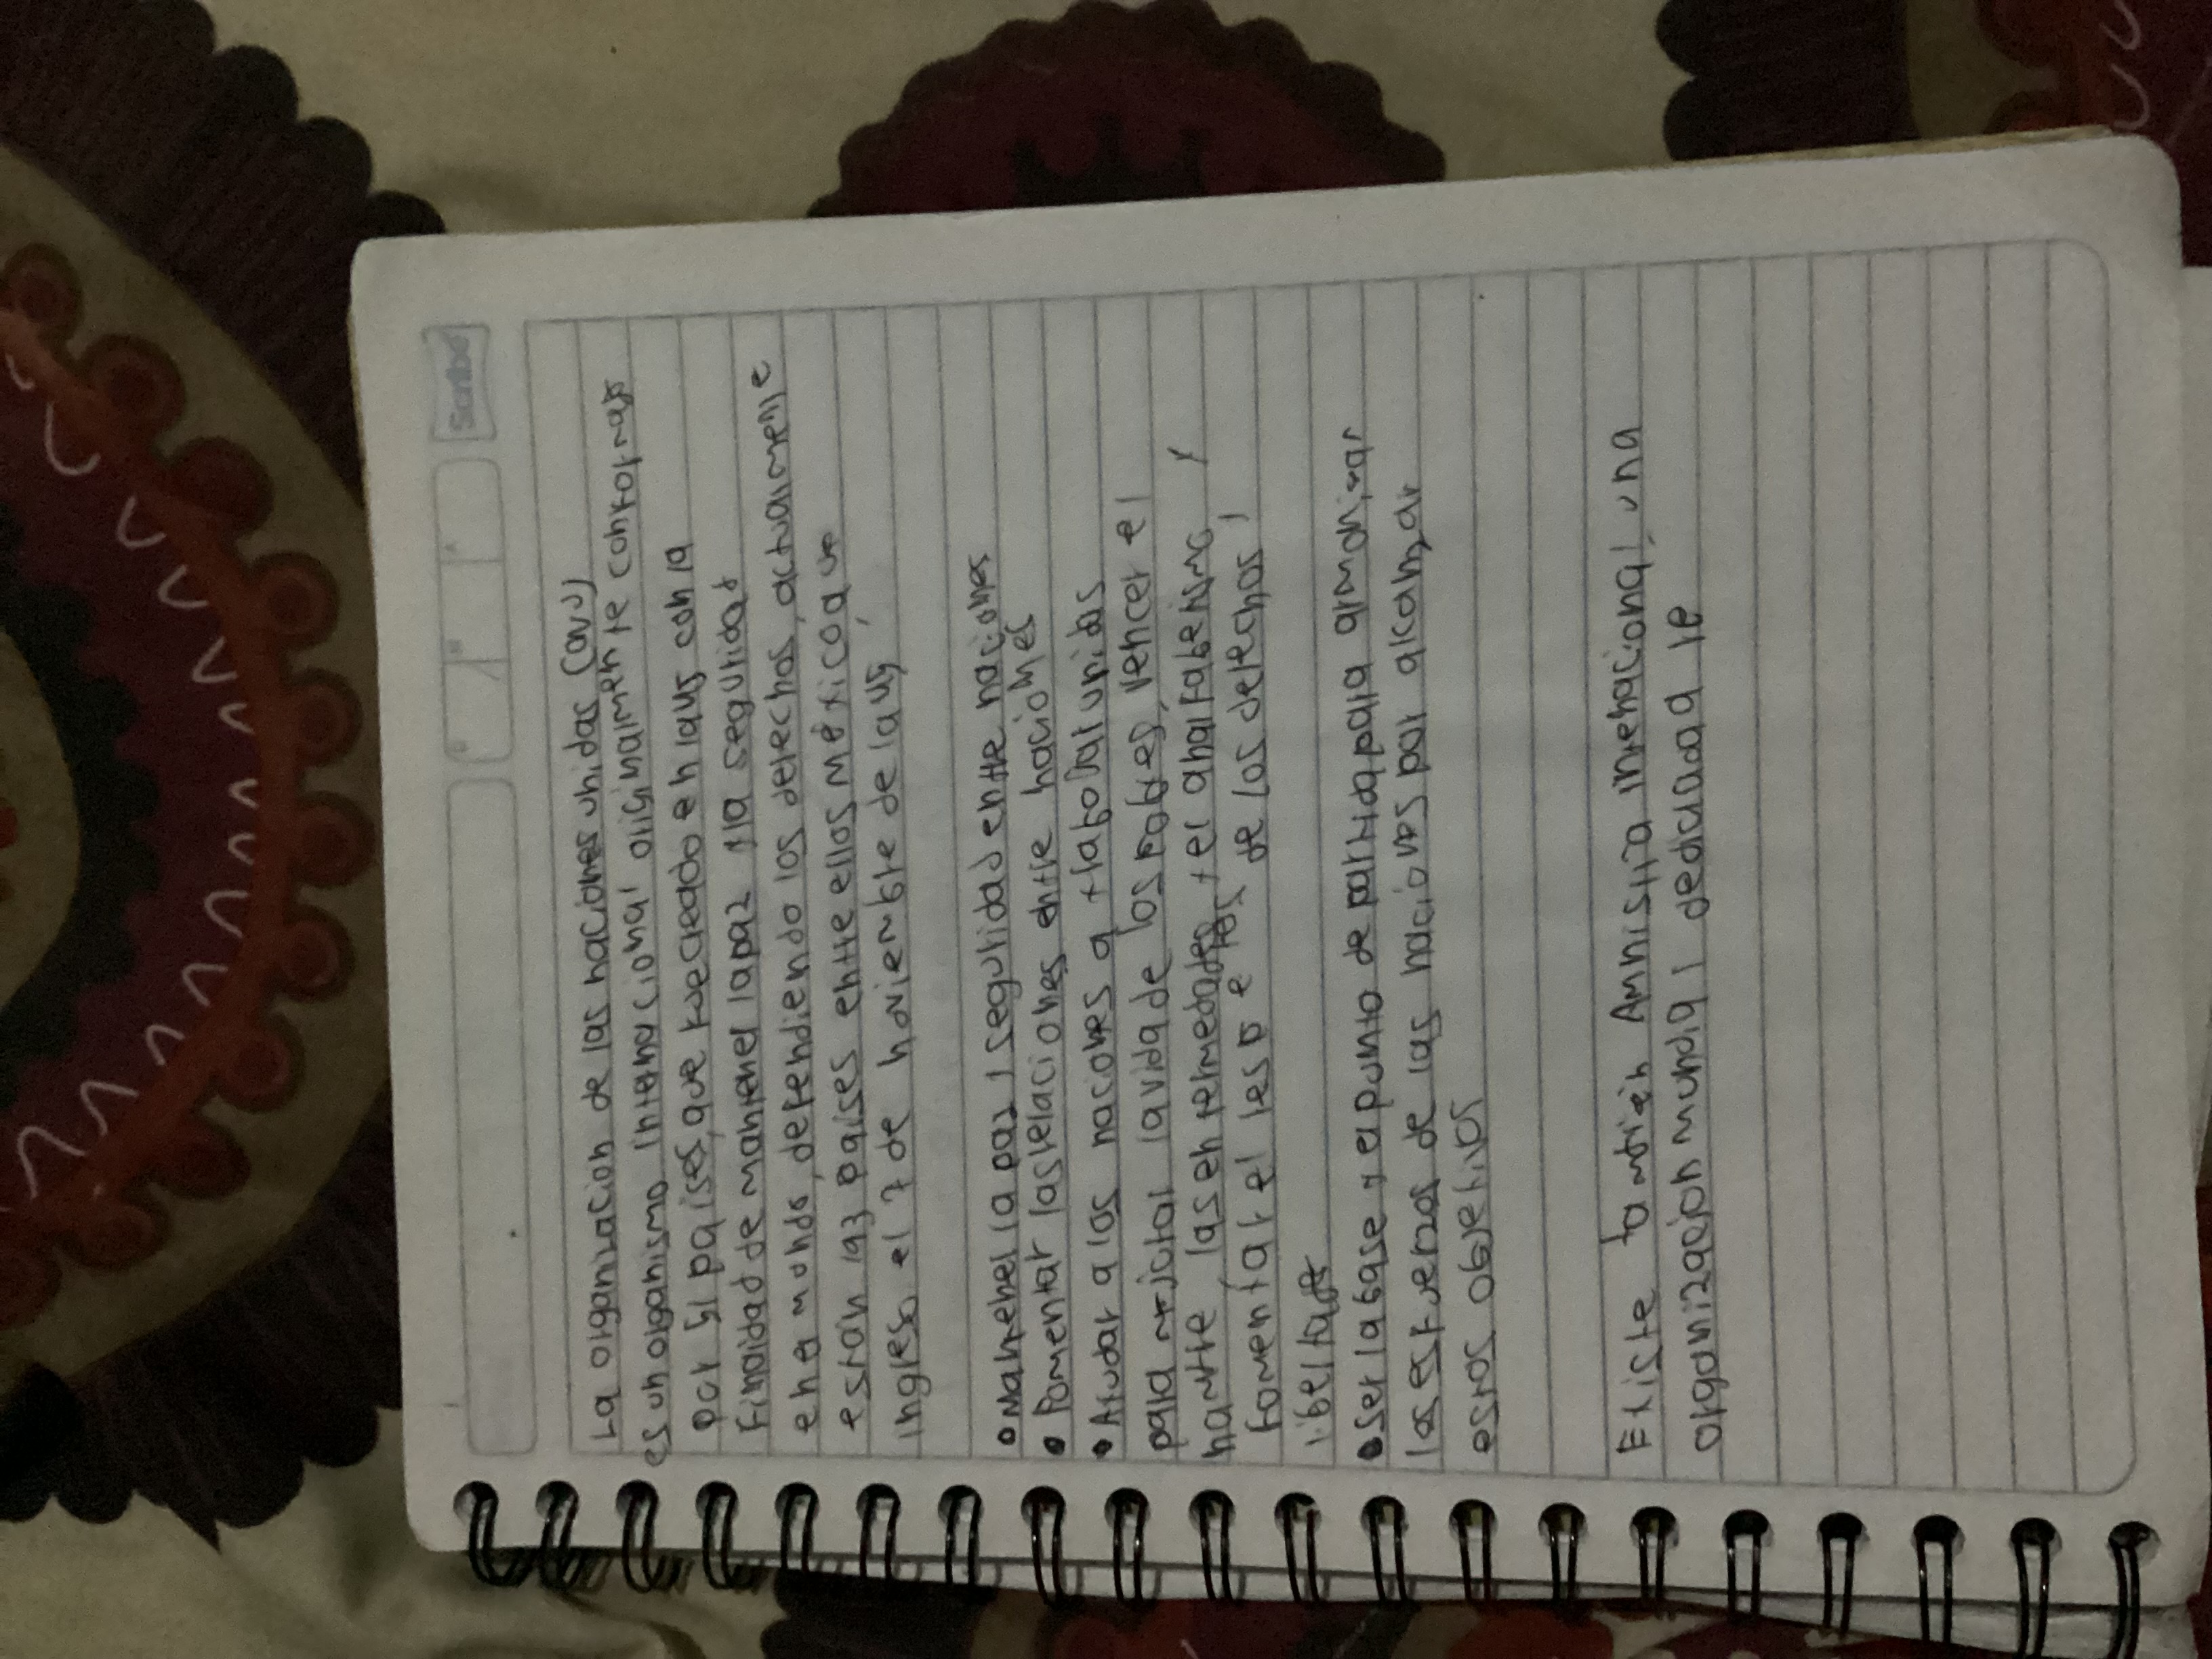 Scribe
La organizacion de las naciones unidas (onu)
es un organismo internacional originalmente conformado
por 51 paises, que fue creado en la
finalidad de mantener la paz y la seguridad
en e mundo, defendiendo los derechos, actualmente
estan 193 paises entre ellos México que
ingreso el 7 de noviembre de
• Mantener la paz y seguridad entre naciones
• Fomentar las relaciones entre naciones
• Ayudar a las naciones a trabajar unidas
para mejorar la vida de los pobres, vencer el
hambre las enfermedades y el analfabetismo y
fomentar el de los derechos y
libertades
• Ser la base y el punto de partida para armonizar
los esfuerzos de las naciones par alcanzar
estos objetivos
Existe también Amnistia internacional, una
organización mundial dedicada